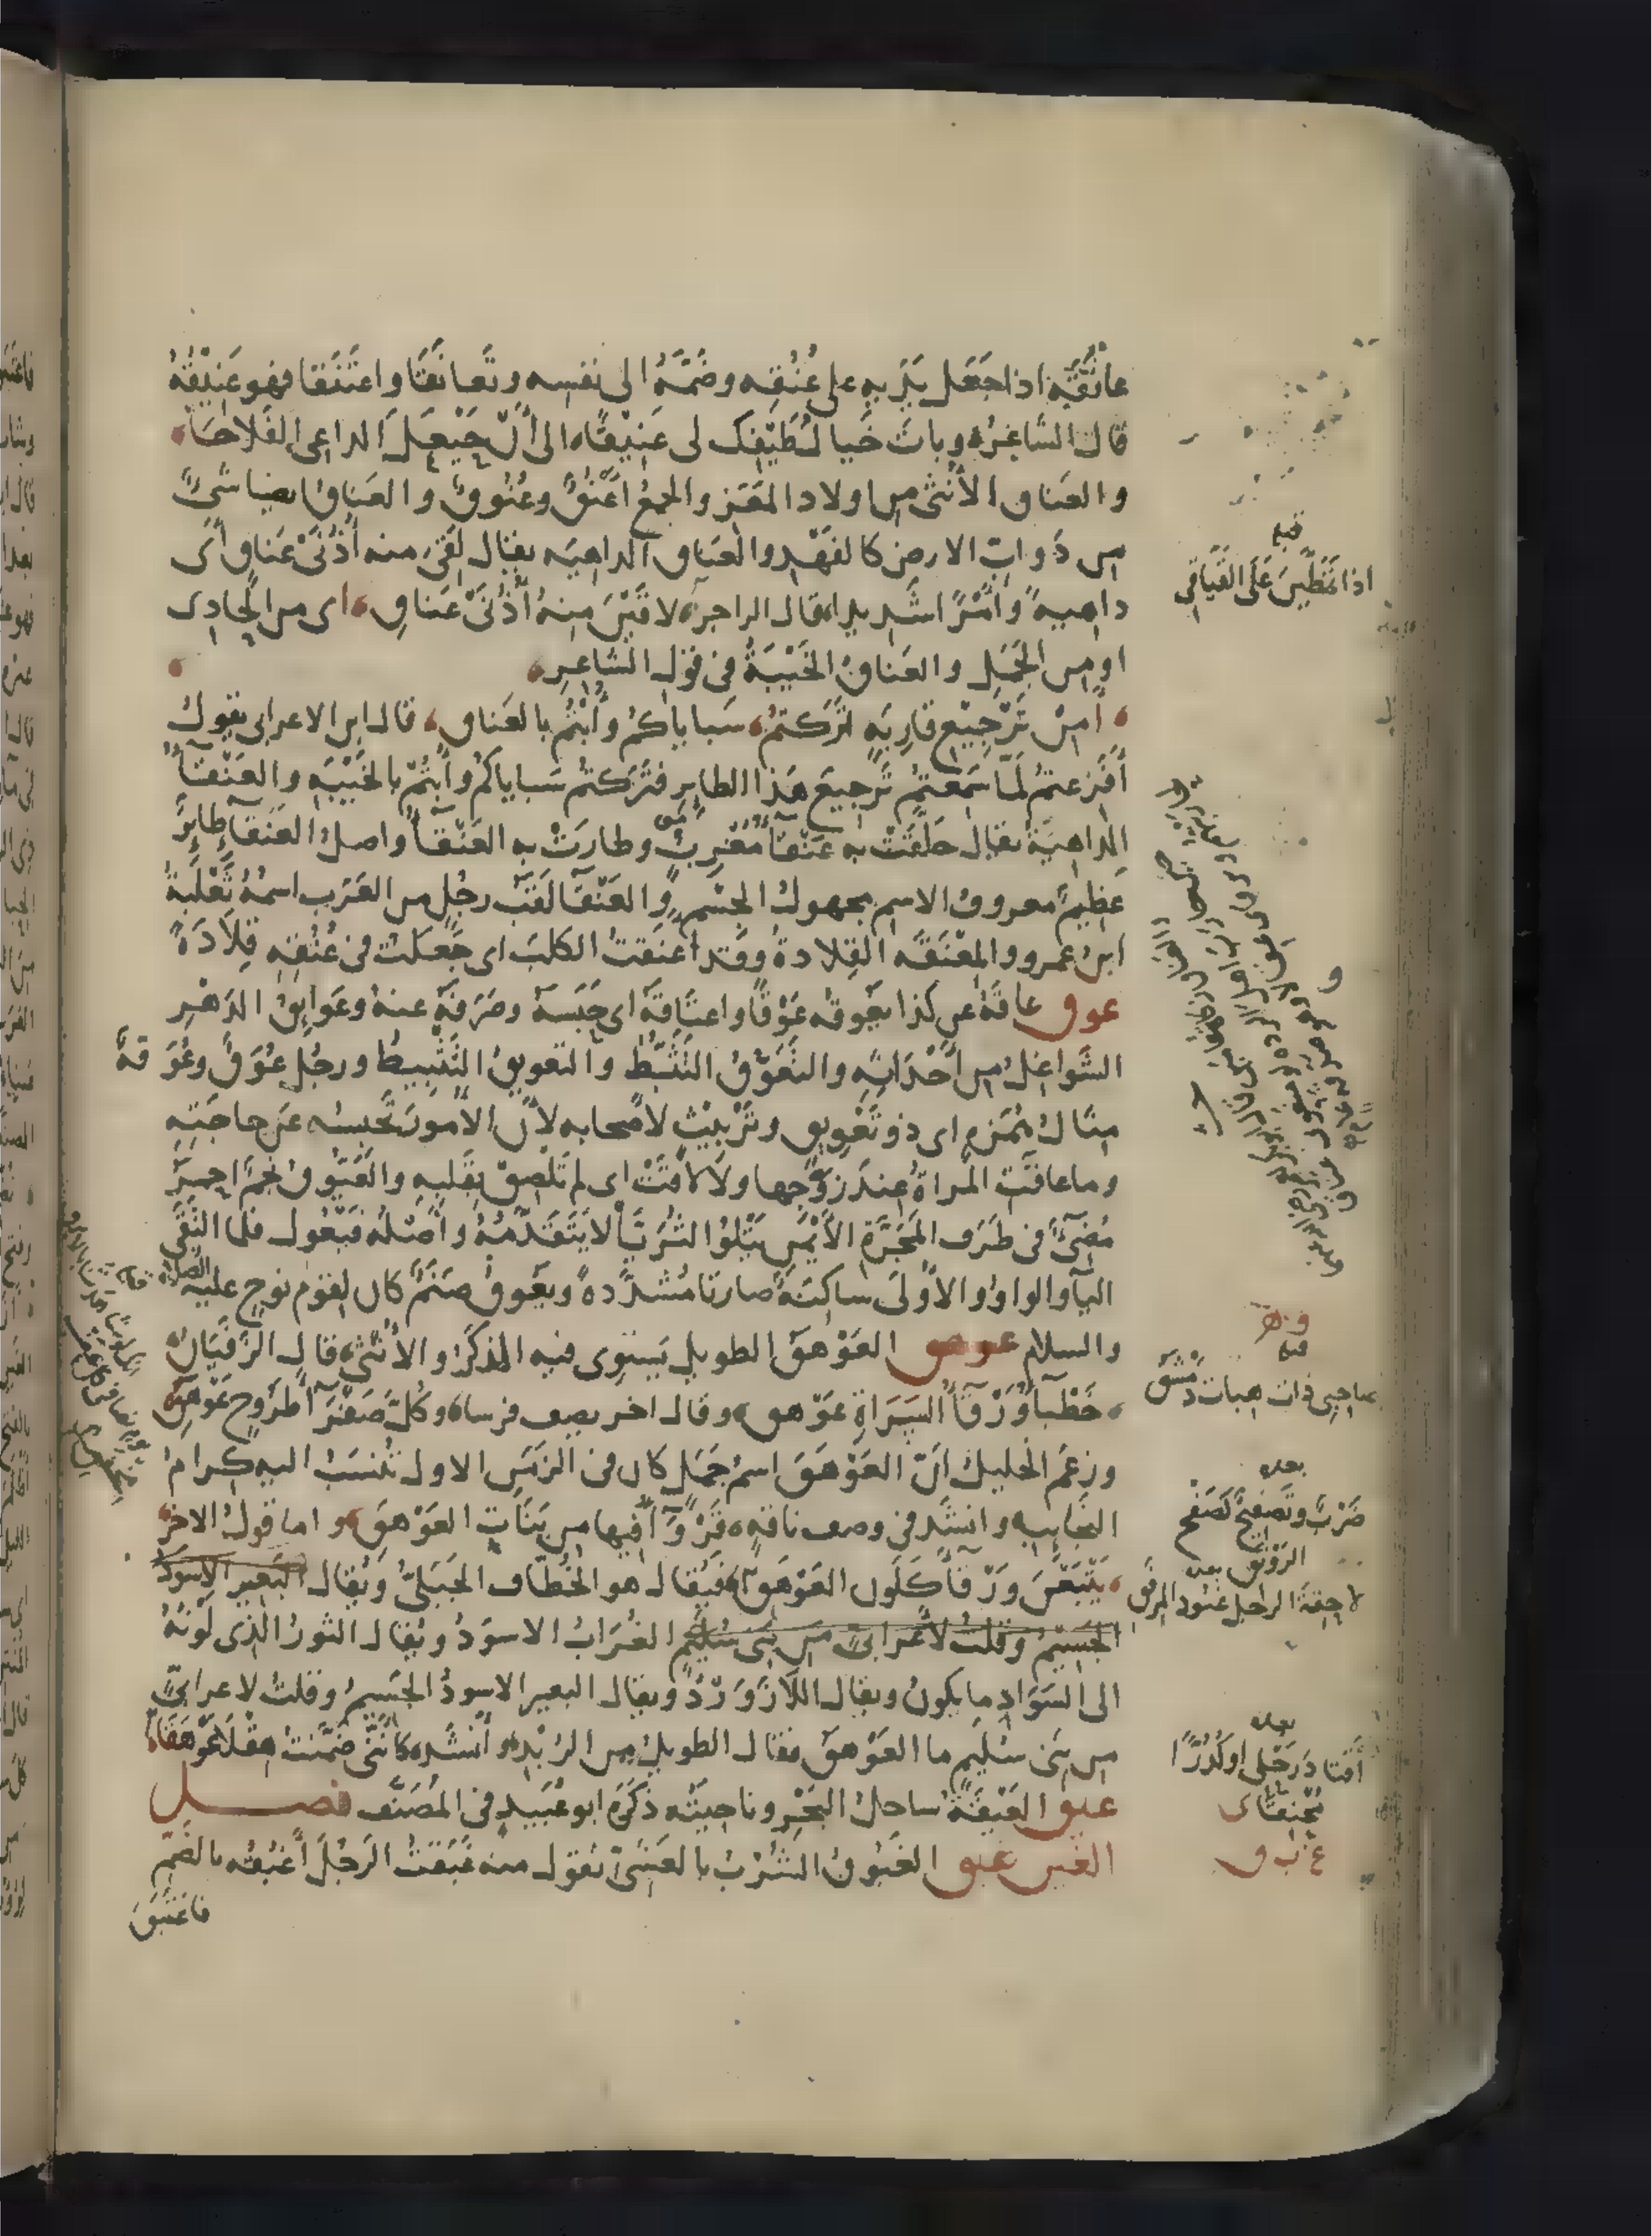 عانَقَهُ اذا جَعَل يَدَيهِ على عُنُقِه وضَمَّهُ الى نفسِه وتَعانَقَا واعتَنَقا فهو عَنِيْقُهُ
قال الشاعرُ وباتَ خَيالُ طَيْفِك لى عَنِيْقًا الى أَنْ حَيْعَلَ الداعى الفَلاحَا
والعَناق الأُنثَى من اولاد المَعَز والجمعُ اَعْنُقٌ وعُنُوقٌ والعَناقُ ايضا شىٌ
من دَوابّ الارض كالفَهْد والعَناق الداهيَه يقال لَقِىَ منه أُذُنَىْ عَناقٍ أى
داهيةً وأَمْرًا شديدا قال الراجز لاقَيْنَ مِنهُ أُذُنَىْ عَناقِ اى من الحادِى
او من الجَمَلِ والعَناقُ الخَيْبَةُ فى قول الشاعرِ
أَمِنْ تَرْجِيْع قارِيَةٍ تَرَكتمُ سَباياكم وأُبْتُمْ بالعَناقِ قال ابن الاعرابى يقول
أَفَزِعتمْ لَمّا سَمِعتمْ تَرجِيعَ هَذا الطاير فتَرَكتمُ سَباياكم وأُبْتُمْ بالخَيْبَهِ والعَنْقَآءُ
الداهِيَةُ يقال حَلَّقَتْ به عَنْقآءُ مُغْرِبٌ وطارَتْ بِه العَنْقآءُ واصلُ العَنقآءِ طايِرٌ
عَظِيمٌ معروفُ الاسم مجهولُ الجسْم والعَنْقآءُ لَقَبُ رجُلٍ من العَرَب اسمُهُ ثَعْلَبةُ
ابنُ عمرو والمِعْنَقَه القِلادةُ وقد أَعْنَقتُ الكلبَ اى جَعَلتُ فى عُنُقِه قِلاَدَةً
عوق عاقَهُ عن كذا يَعُوقهُ عَوْقًا واعتَاقَهُ اى حَبَسَهُ وصَرَفَهُ عنهُ وعَوايِقُ الدَهْرِ
الشَواغلُ من أَحْدَاثِه والتَعَوُّقُ التَثَبُّطُ والتعويقُ التَثْبِيطُ ورجُلٌ عُوَقٌ وعُوَقَةٌ
مثالُ هُمَزهٍ اى ذو تَعْوِيقٍ وتَرْبِيْثٍ لاصحابه لأَنّ الأُمورَ تَحبِسُه عَن حاجَتِهِ
وما عاقَتِ المرأةُ عِندَ زَوْجِها ولَا لاقَتْ اى لم تَلصَقْ بِقَلبِهِ والعَيُّوقُ نَجْمٌ احمَرُ
مُضِىٌ فى طَرَف المَجَرَّةِ الأَيْمَنِ يَتْلُوا الثُرَيَّا لا يَتَقَدَّمُهُ وأَصْلُه فَيْعُول فلما التَقَى
اليآ والواوُ والأُولَى ساكنَةٌ صارتا مُشدَّدةً ويَعُوقُ صَنَمٌ كان لقوم نوحٍ عليه الصلاة
والسلام عوهق العَوْهَقُ الطويل يَستوِى فيه المذكَّرُ والأُنثَى قال الزَفَيَانُ
خَطْبآءُ وَرْقآءُ السَراةِ عَوْهَق وقال اخر يصف فرسا وكُلّ صَفْرَآءَ طَرُوحٍ عَوْهَقِ
وزعَمَ الخليلُ انّ العَوْهَقَ اسمُ جَمَلٍ كان فى الزَمَن الاول تُنسَبُ اليه كرامُ
النَجايِب وانشَد فى وصف ناقَهٍ قَرْوَآءُ فيها من بَنَاتِ العَوْهَقِ واما قولُ الاخر
يَتْبَعْنَ وَرْقآءَ كَلَوْن العَوْهَقِ فيُقال هو الخُطّاف الجَبَلىُّ ويُقال البَعيرُ الاسوَدُ
الجَسِيمُ وقلتُ لأَعرابىٍّ من بَنى سُلَيْمٍ الغُرَابُ الاسوَدُ ويُقال الثورُ الذى لَوْنُهُ
الى السَوَادِ ما يكونُ ويقال اللَازَوَرْدُ ويقال البعير الاسودُ الجَسِيمُ وقلتُ لاعرابىٍّ
من بَنى سُلَيمٍ ما العَوْهَقُ فقال الطويلُ من الرُبْدِ وأَنْشَدَ كَأَنَّنى ضَمَّنتُ هِقْلًا عَوْهَقَا
عيق العَيْقَةُ ساحلُ البَحْرِ وناحِيَتُه ذَكَرَهُ ابو عُبَيدٍ فى المُصَنَّف فصل
الغين غبق الغَبُوقُ الشُرْبُ بالعَشِىّ تقول منه غَبَقتُ الرَجُلَ أَغبُقُه بالضَمّ
فاغتَبَقَ
قبله
اذا تَمَطَّيْنَ عَلَى القَيَاقِى
قبله
صاحبى ذات هبات دَمْشَقُ
بعده
ضَرْبٌ وتَصفِيحٌ كَصَفْح
الرَوْنَقِ بعده
لاحِقَةَ الرِجْلِ عَنُودَ المِرْفَق
بعده
أَقْتَادَ رَحْلى او كُدُرًّا
مُحْنِقَا
غ ب ق